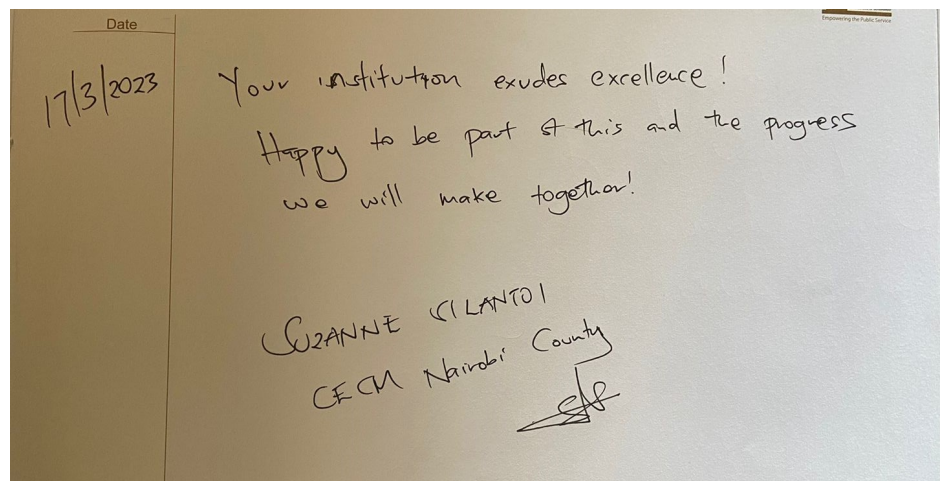 Date
Empowering the Public Service
17/3/2023
Your institution exudes excellence!
Happy to be part of this and the progress
we will make together!
SUZANNE SILANTOI
CECM Nairobi County